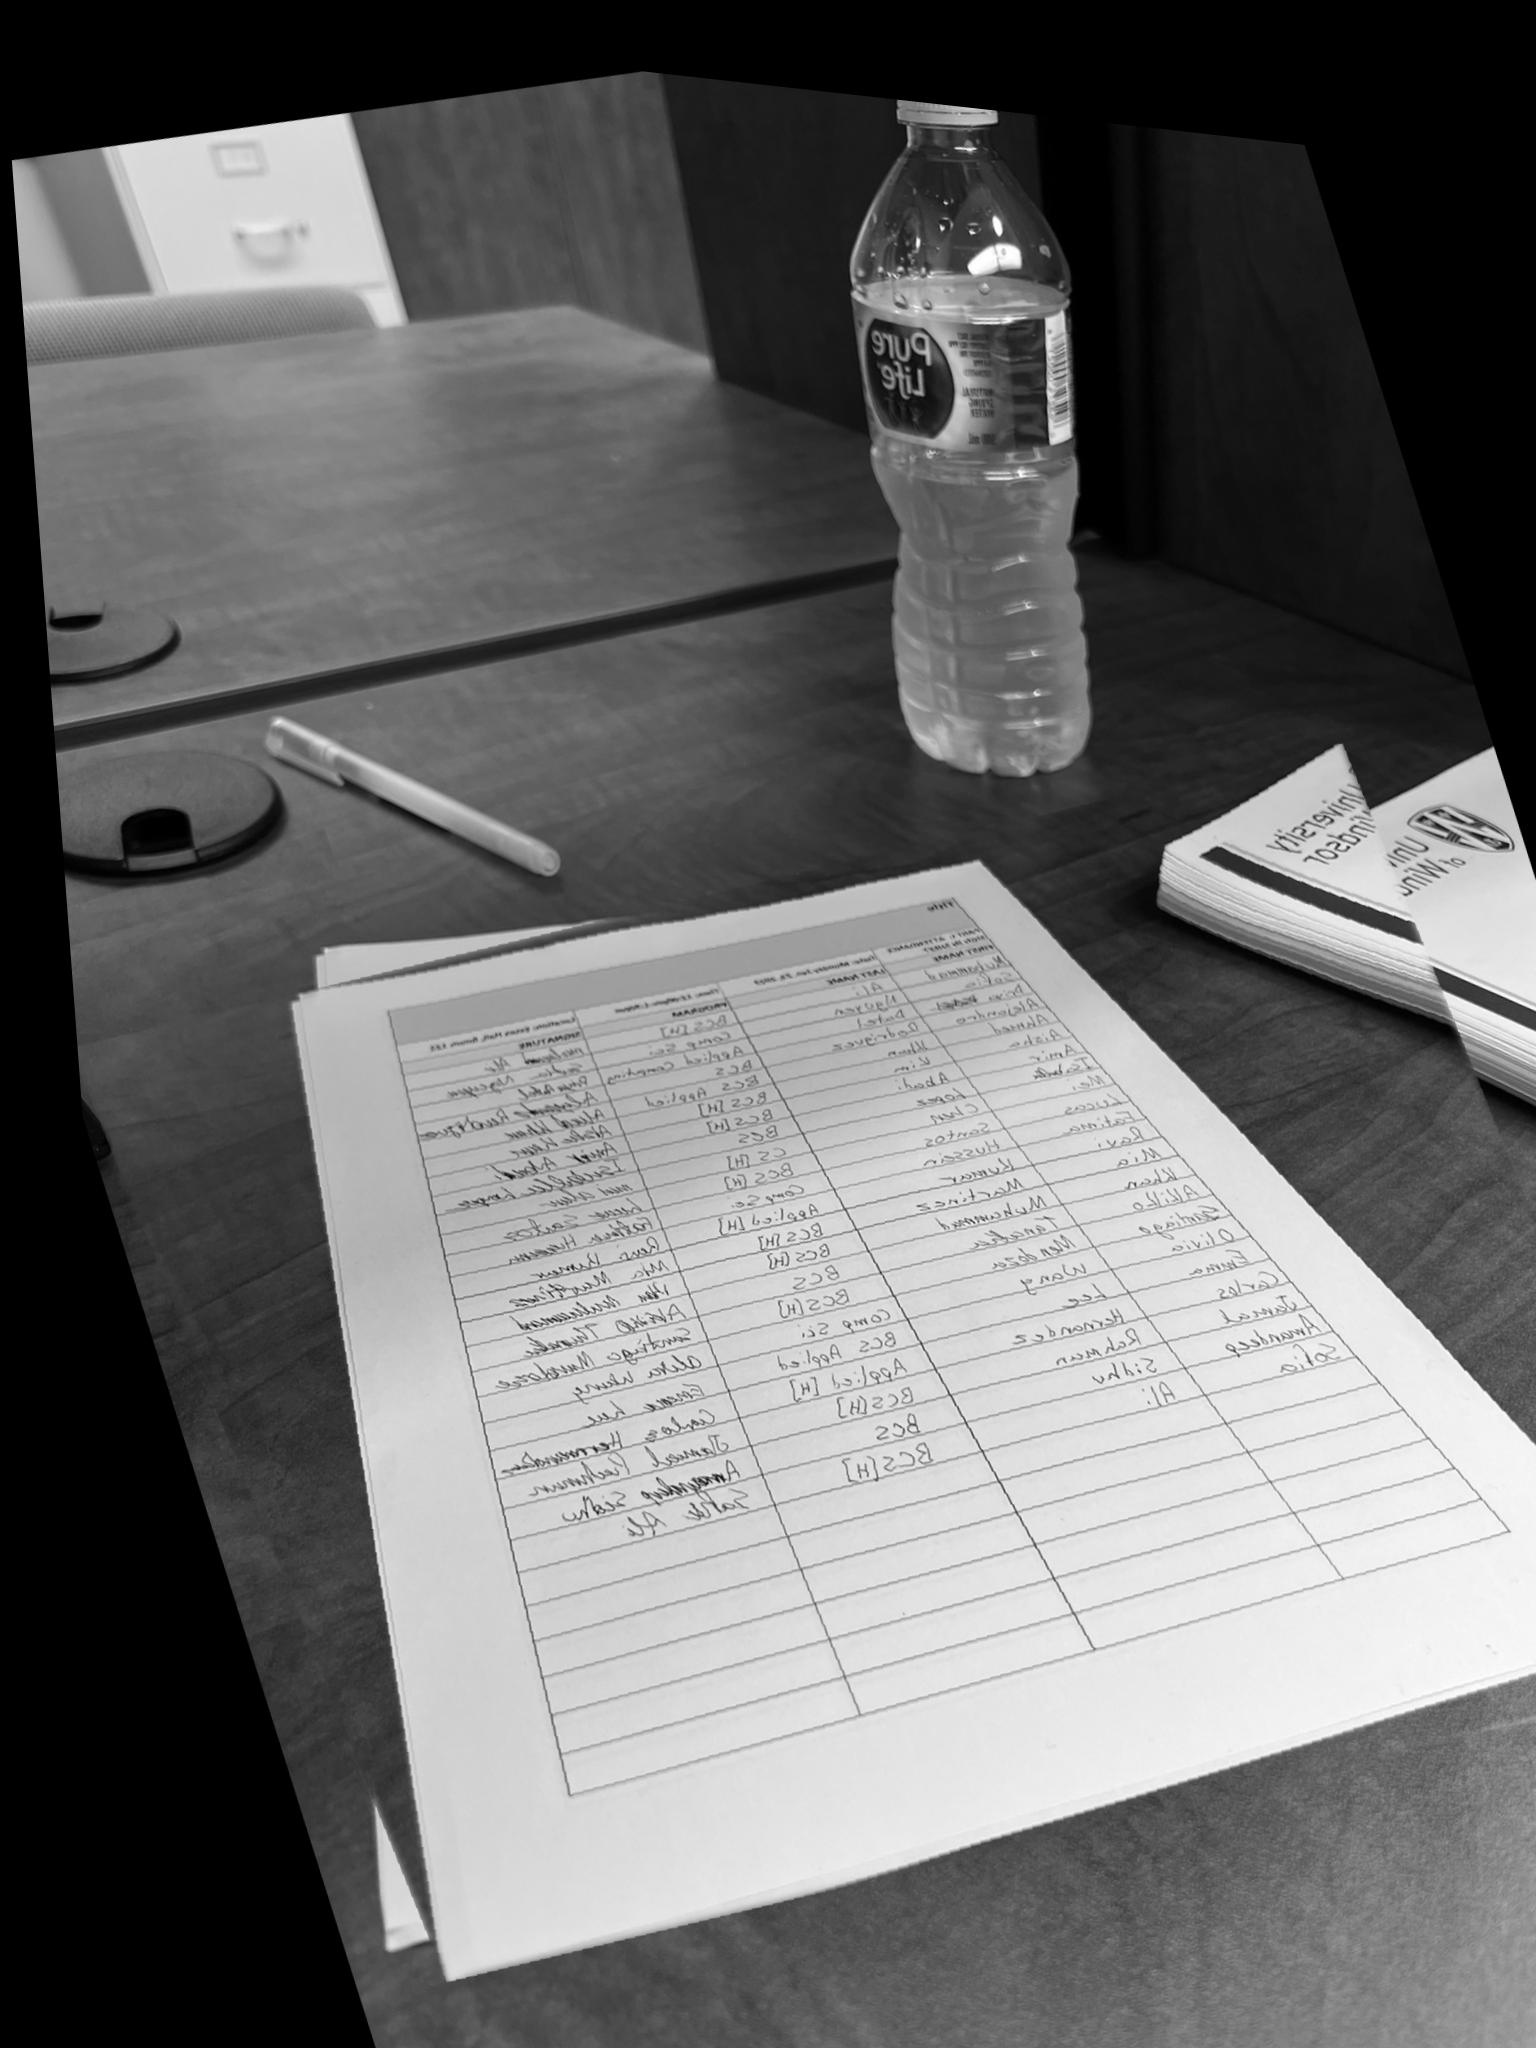 Pure
Life
NATURAL
SPRING
WATER
500 mL
University
Windsor
Univ
of Wind
Title
PART I: ATTENDANCE
SIGN IN SHEET Date: Monday Time: Location: Essex Hall, Room
FIRST NAME LAST NAME PROGRAM SIGNATURE
Muhammad Ali BCS [H] Ali
Sofia Nguyen Comp Sci Sofia Nguyen
Priya Patel Applied Computing Priya Patel
Alejandro Rodriguez BCS Alejandro Rodriguez
Ahmed Khan BCS Applied Ahmed Khan
Aisha Kim BCS [H]
Amir Abadi BCS [H] Amir Abadi
Isabella Lopez BCS Isabella Lopez
Mei Chen CS [H] Mei Chen
Lucas Santos BCS [H] Lucas Santos
Fatima Hussein Comp Sci Fatima Hussein
Ravi Kumar Applied [H] Ravi Kumar
Mia Martinez BCS [H] Mia Martinez
Khan Muhammad BCS [H] Khan Muhammad
Akiko Tanaka BCS Akiko Tanaka
Santiago Mendoza BCS [H] Santiago Mendoza
Olivia Wang Comp Sci Olivia Wang
Emma Lee BCS Applied Emma Lee
Carlos Hernandez Applied [H] Carlos Hernandez
Jamal Rehman BCS [H] Jamal Rehman
Amandeep Sidhu BCS Amandeep Sidhu
Sofia Ali BCS [H] Sofia Ali